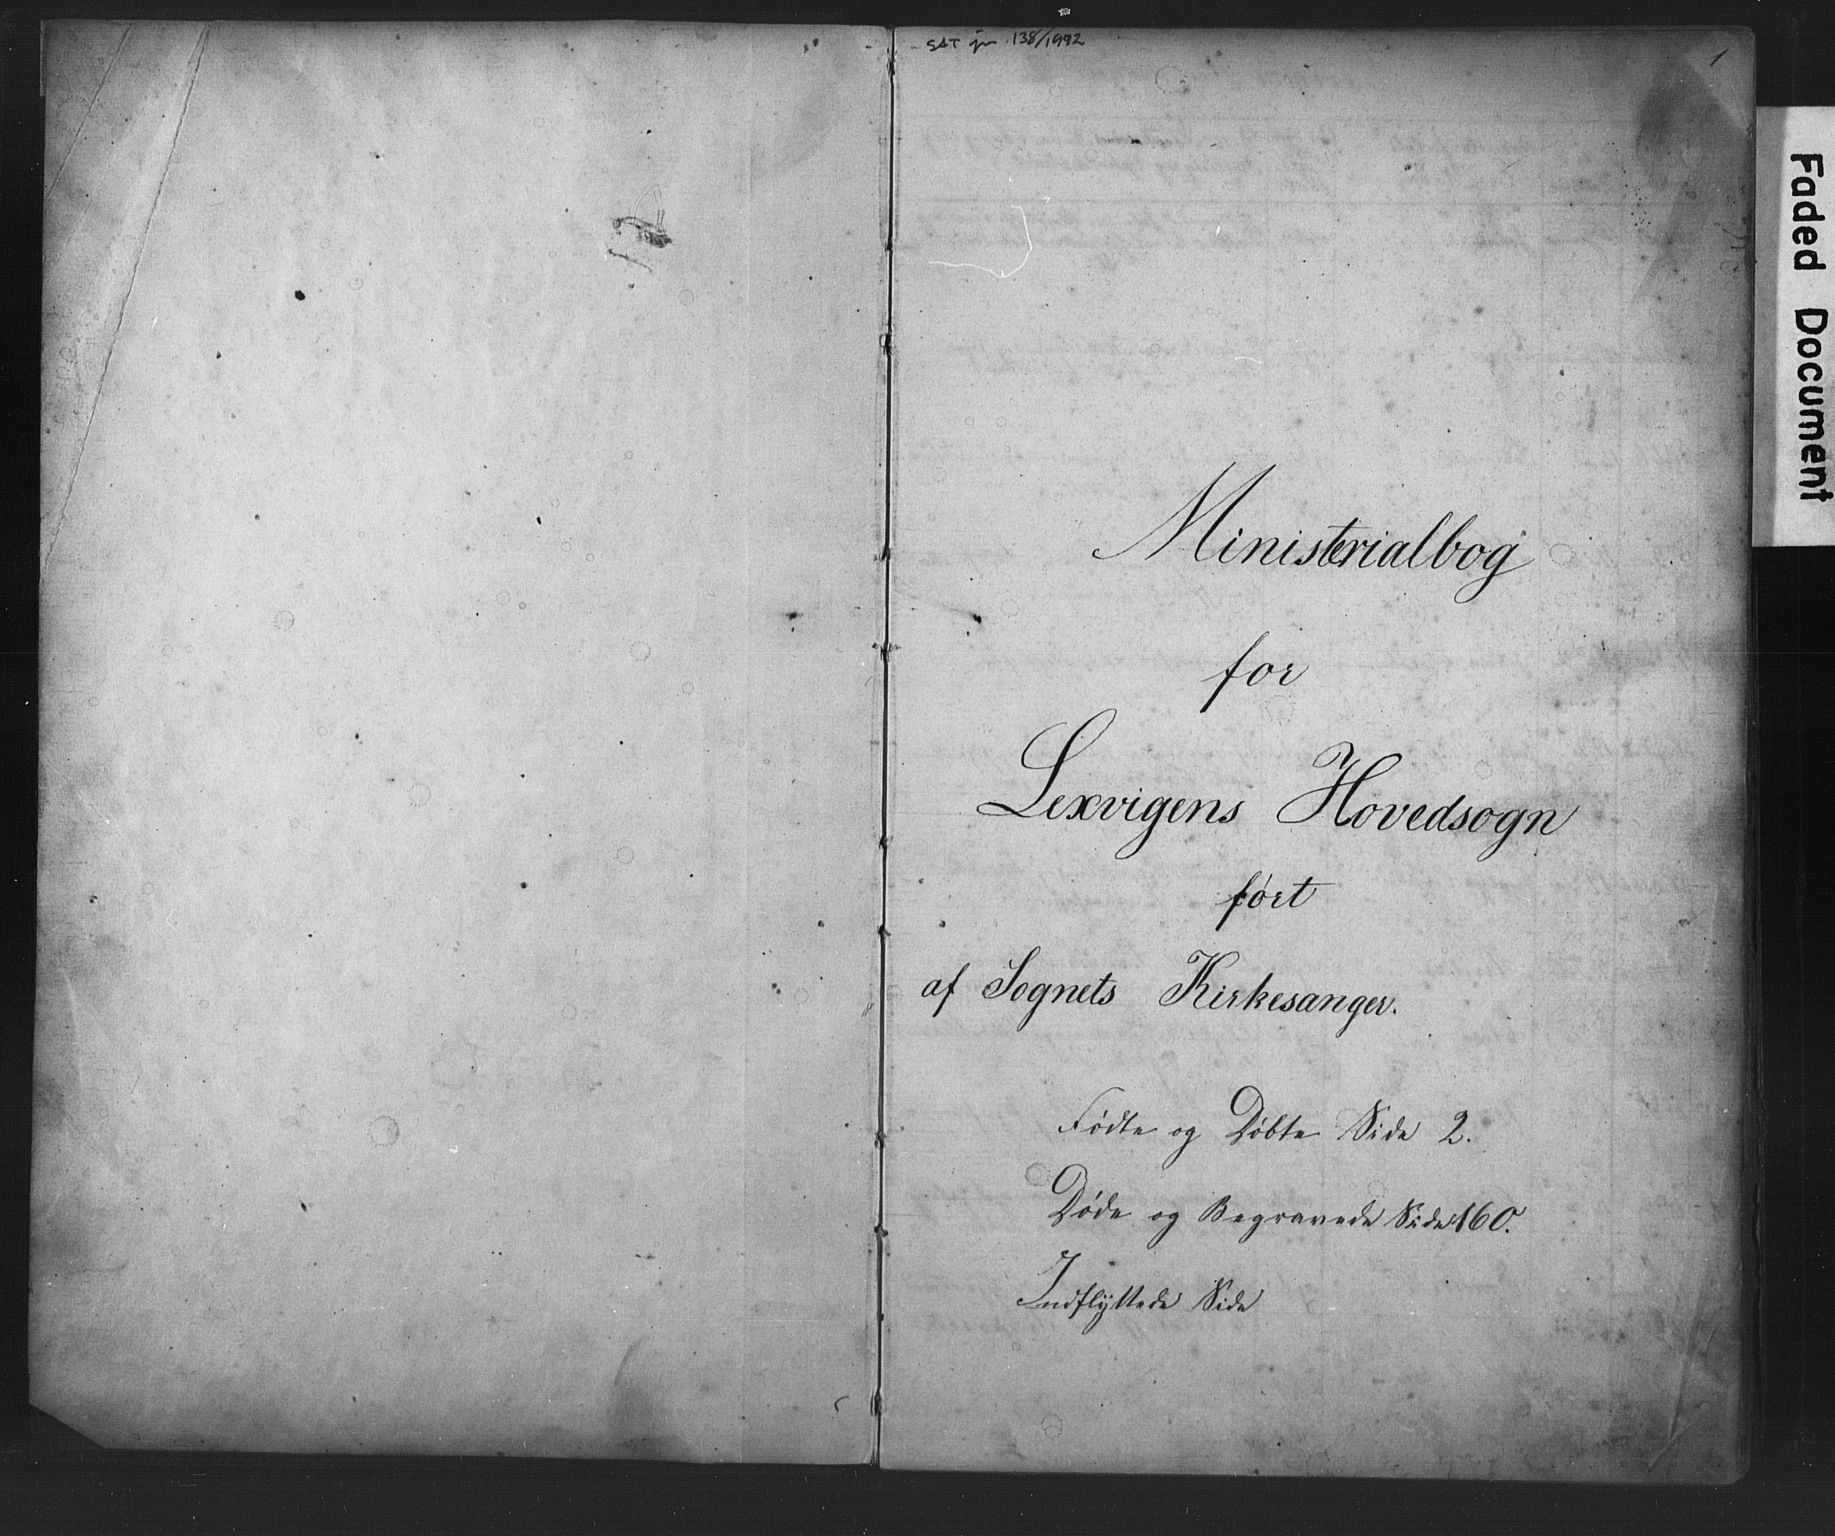 SAT jnr 138/1992
1
Faded Document
Ministerialbog
for
Lexvigens Hovedsogn
ført
af Sognets Kirkesanger.
Fødte og Døbte Side 2.
Døde og Begravede Side 160.
Indflyttede Side